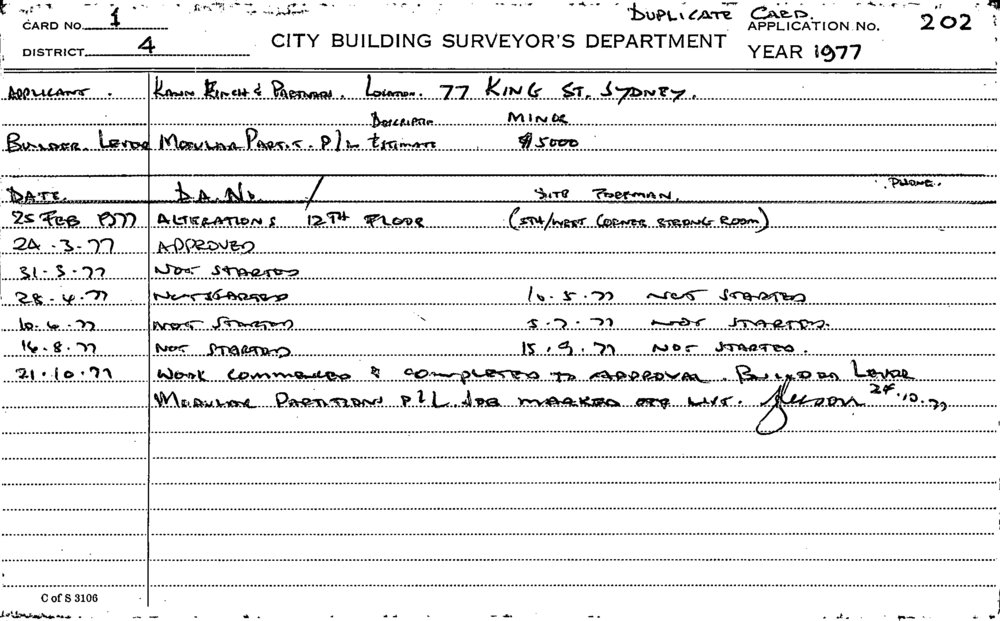 DUPLICATE CARD.
CARD NO. 1 APPLICATION NO. 202
DISTRICT 4 CITY BUILDING SURVEYOR'S DEPARTMENT YEAR 1977
APPLICANT. KANN FINCH & PARTNERS. LOCATION. 77 KING ST. SYDNEY.
DESCRIPTION MINOR
BUILDER. LEVOR MODULAR PART.T. P/L ESTIMATE $5000
DATE. D.A. No. / SITE FOREMAN. PHONE.
25 FEB 1977 ALTERATIONS 12TH FLOOR (STH/WEST CORNER STRONG ROOM)
24.3.77 APPROVED
31.3.77 NOT STARTED
28.4.77 NOT STARTED 10.5.77 NOT STARTED
10.6.77 NOT STARTED 5.7.77 NOT STARTED.
16.8.77 NOT STARTED 15.9.77 NOT STARTED.
21.10.77 WORK COMMENCED & COMPLETED TO APPROVAL. BUILDER LEVOR
MODULAR PARTITIONS P/L. JOB MARKED OFF LIST. 24.10.77
C of S 3106